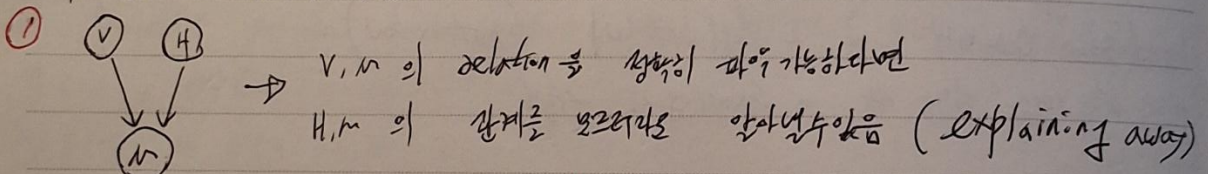 ① V H
→ V, M 의 relation을 정확히 파악 가능하다면
H, M 의 관계를 모르더라도 알아낼수있음 (explaining away)
M